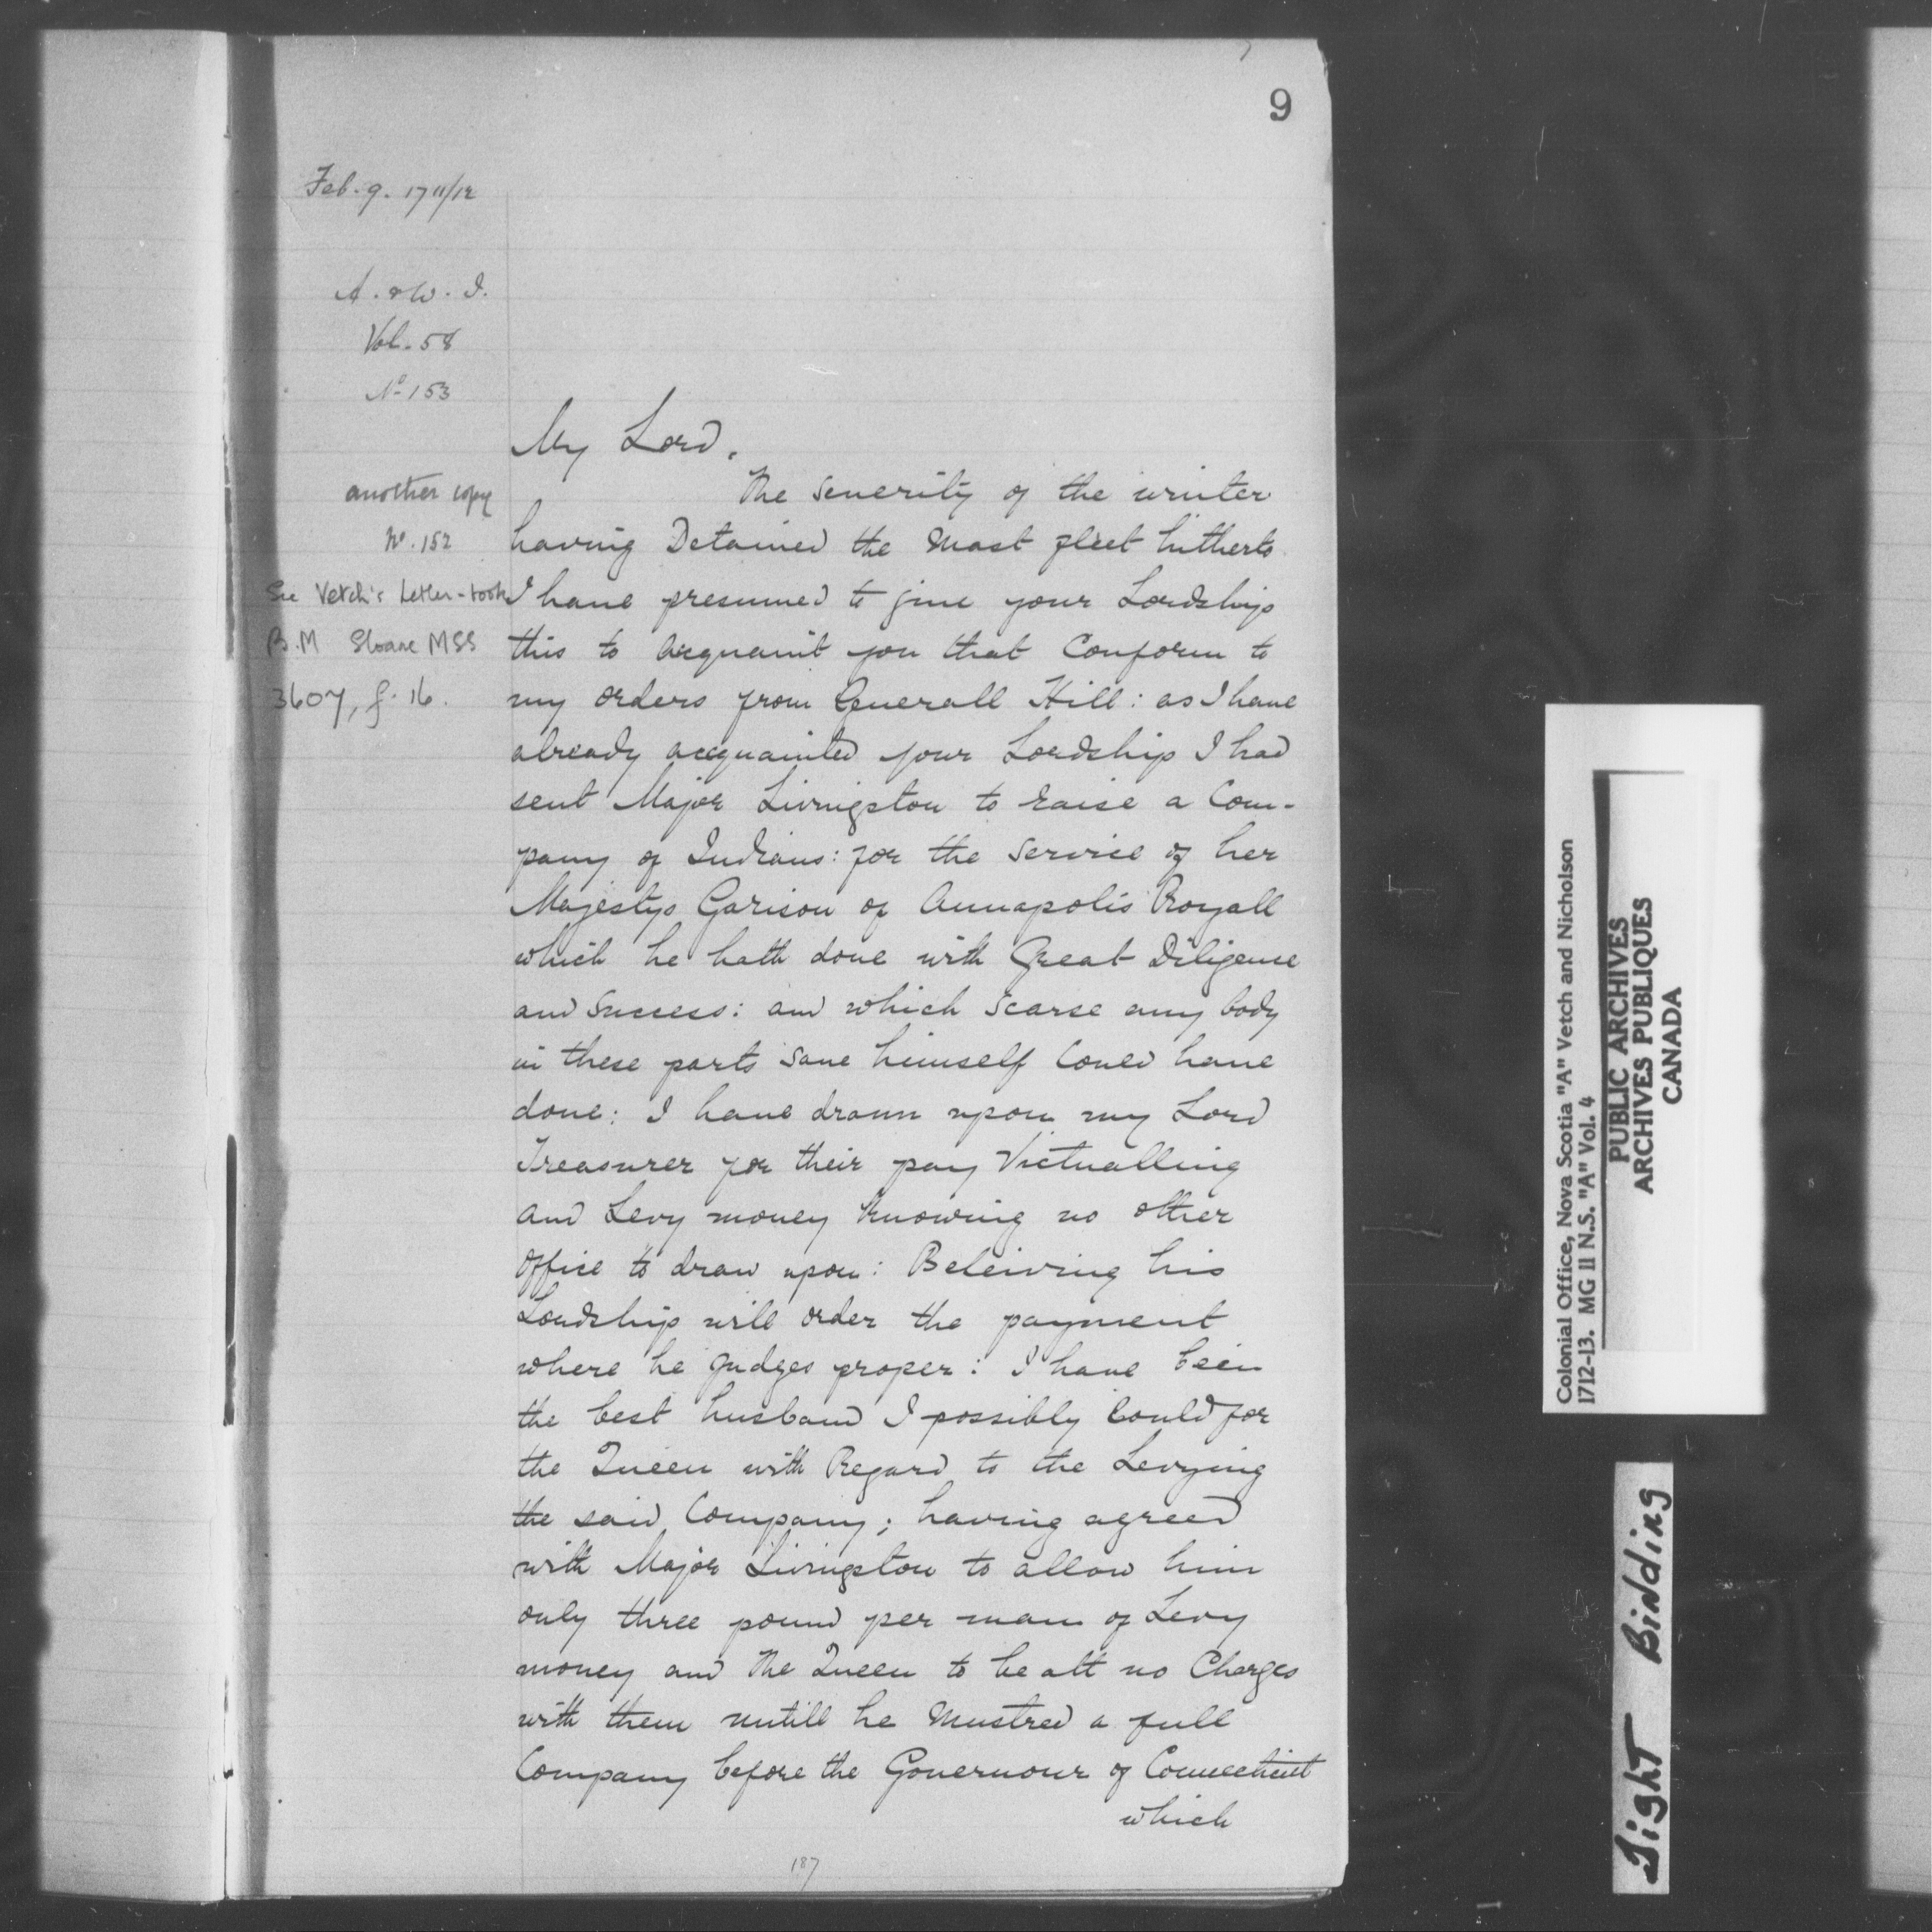 9
Feb. 9. 1711/12
A. & W. I.
Vol. 58
No 153
another copy
No. 152
See Vetch's Letter-book
B.M Sloane MSS
3607, f. 16.
My Lord,
The severity of the winter
having Detained the Mast fleet hitherto
I have presumed to give your Lordships
this to acquaint you that Conform to
my orders from Generall Hill: as I have
already acquainted your Lordship I had
sent Major Livingston to raise a Com-
pany of Indians: for the service of her
Majestys Garison of Annapolis Royall
which he hath done with Great Diligence
and Success: and which scarse any body
in these parts save himself Could have
done: I have drawn upon my Lord
Treasurer for their pay Victualling
and Levy money knowing no other
office to draw upon: Beleiving his
Lordship will order the payment
where he Judges proper: I have been
the best husband I possibly Could for
the Queen with Regard to the Levying
the said Company; having agreed
with Major Livingston to allow him
only three pound per man of Levy
money and the Queen to be att no Charges
with them untill he Mustred a full
Company before the Governour of Connecticut
which
187
Colonial Office, Nova Scotia "A" Vetch and Nicholson
1712-13. MG 11 N.S. "A" Vol. 4
PUBLIC ARCHIVES
ARCHIVES PUBLIQUES
CANADA
Tight Binding